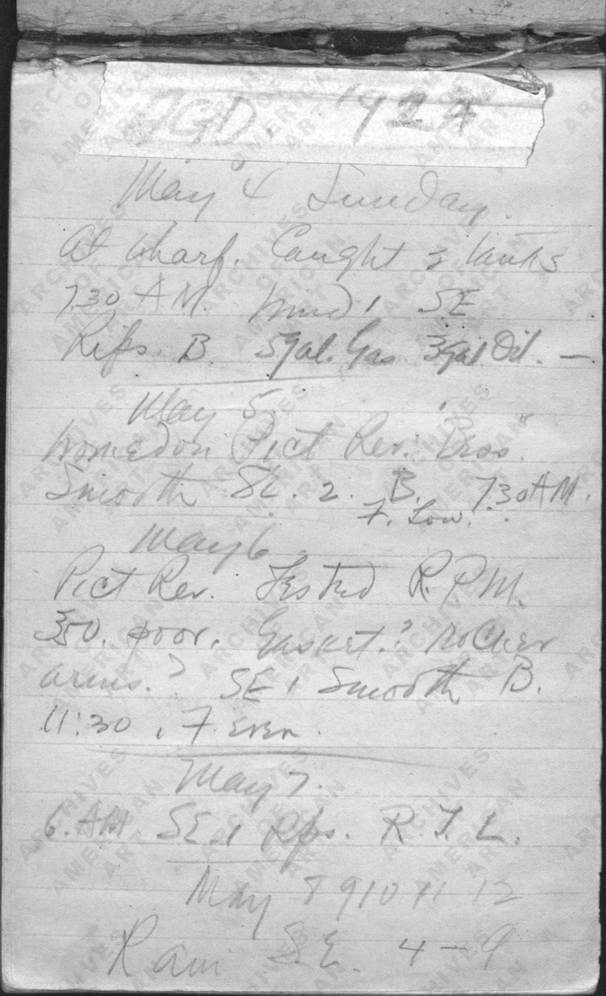 JGD. 1924
May 4 Sunday.
At wharf. Caught 3
7.30 A.M. Wind, SE
Rips. B. 5 gal. Gas 3 gal. Oil. —
May 5.
Worked on Pict Rev.
Smooth SE. 2. B. 7.30 AM.
F. Low.
May 6
Pict Rev. Tested R.P.M.
350. poor. Gasket? rocker
arms? SE 1 Smooth B.
11:30, F even.
May 7.
6. AM. SE 1 Rps. R. F. L.
May 8 9 10 11 12
Rain S.E. 4 - 9
ARCHIVES OF AMERICAN ART